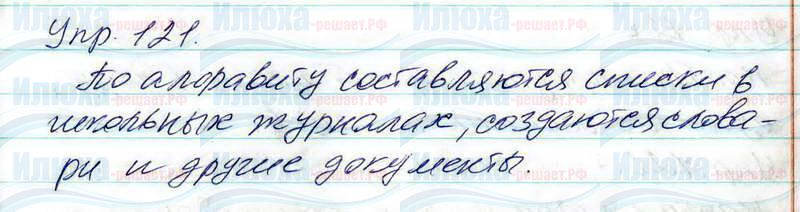 Упр. 121.
По алфавиту составляются списки в
школьных журналах, создаются слова-
ри и другие документы.